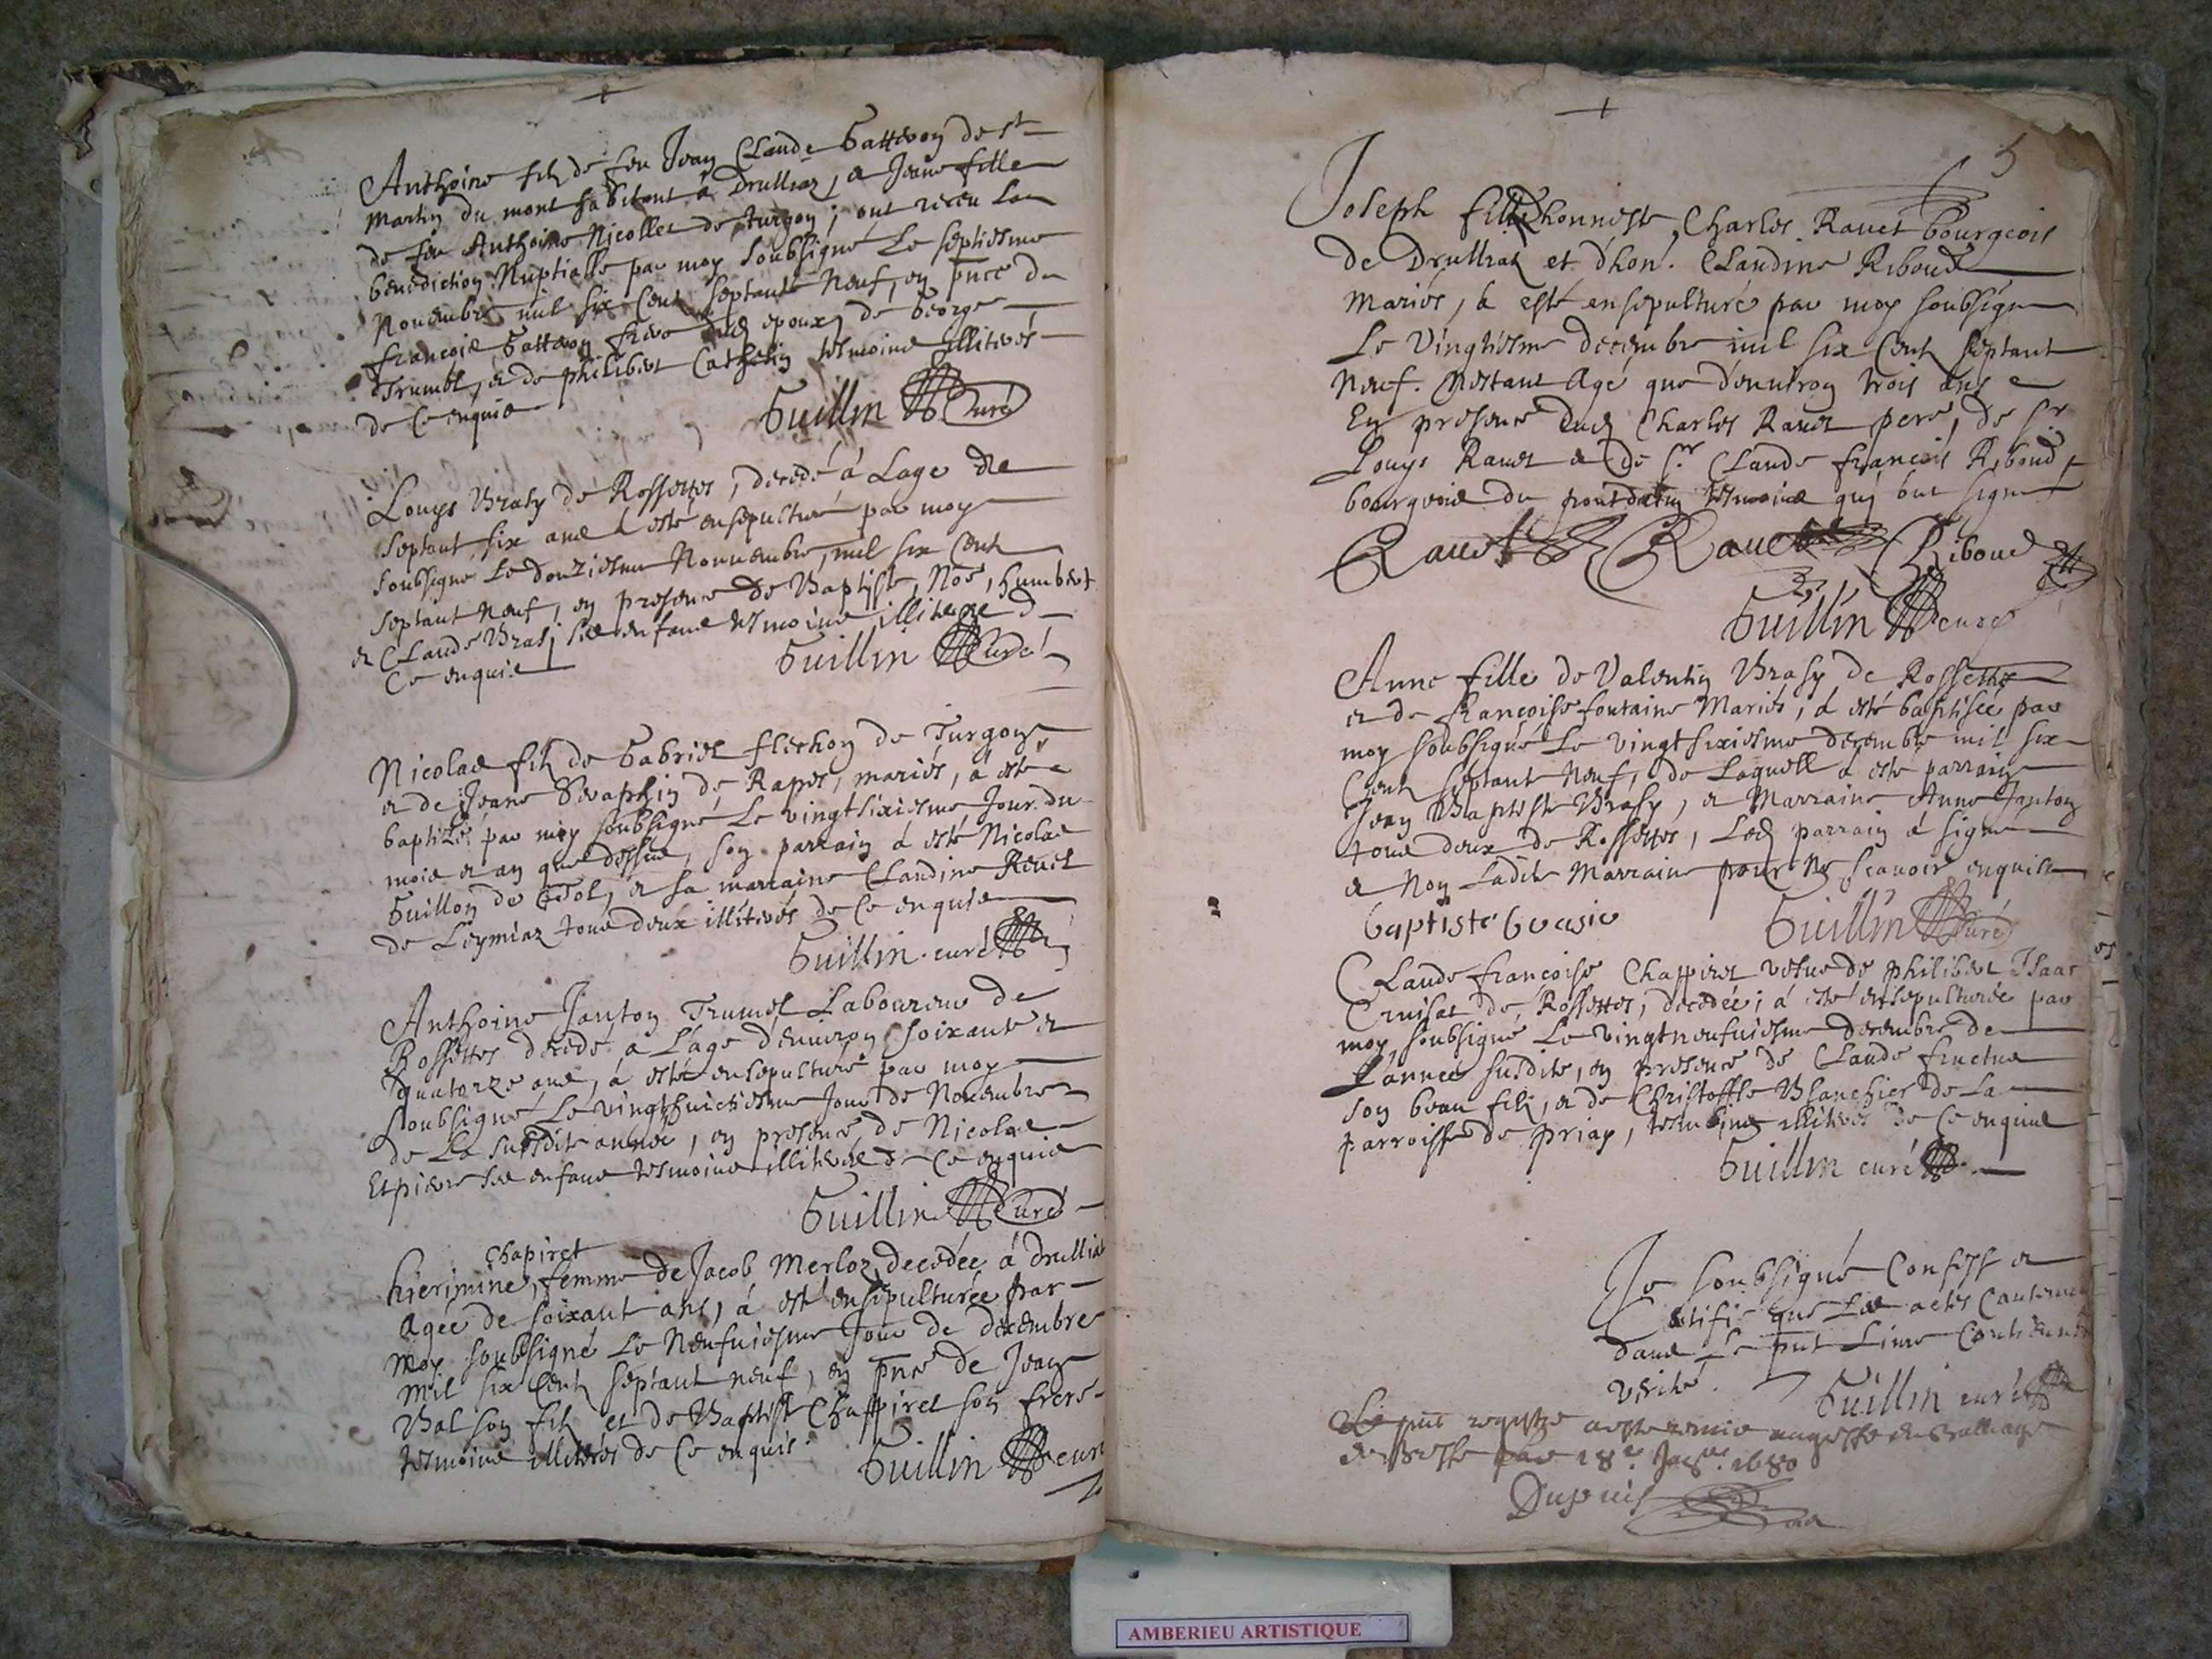 Anthoine filz de feu Jean Claude Gattevoy de st
Martin du mont habitant à Drulliaz, & Jeane fille
de feu Anthoine Nicollet de Turgon ; ont receu la
benediction Nuptialle par moy soubsigné Le septiesme
Novembre mil six Centz septante Neuf, en pnce de
francois frere dud epoux, de George
Trumel, & de philibert Cathelin tesmoins illiterés
de ce enquis
Guillin Curé
Louys Brasy de Rossettes, decedé à Lage de
septant six ans à esté ensepulturé par moy
soubsigné Le douziesme Nouvembre, mil six Centz
septant Neuf, en presence de Baptiste, Noé, humbert
& Claude Brasj ses enfans tesmoins illiteres d
Ce enquis
Guillin Curé
Nicolas filz de Gabriel flechon de Turgon,
& de Jeane Seraphin de Rapes, mariés, à esté
baptizé par moy soubsigné Le vingt sixiesme Jour du
mois & an que dessus, son parrain à esté Nicolas
Guillon de & sa marraine Claudine Revet
de Leymiaz tous deux illiterés de Ce enquis
Guillin curé
Anthoine Janton Trumel Laboureur de
Rossettes decedé à L'age d'environ soixante &
quatorze ans, à esté ensepulturé par moy
soubsigné Le vingthuictiesme Jour de Novembre
de La susdite année, en presence de Nicolas
Et pierre ses enfans tesmoins illiteres de Ce enquis
Guillin Curé
Chapiret
hierimine, femme de Jacob Merloz, decedée à drulliat
Agée de soixant ans, à esté ensepulturée par
Moy soubsigné Le Neufuiesme Jour de decembre
Mil six Centz septant neuf, en pnce de Jean
Bal son filz et de Baptiste Chappiret son frere
tesmoins illiterés de Ce enquis
Guillin curé
5
Joseph filz d'honneste Charles Ravet bourgeois
de Drulliat et d'hon. Claudine Riboud
Mariés, à esté ensepulturé par moy soubsigné
Le Vingtiesme decembre mil six Centz septant
Neuf. N'estant Agé que d'environ trois ans &
En presence dud Charles Ravet pere, de sr
Louys Ravet & de sr Claude francois Riboud
bourgeois du pontdain tesmoins quj ont signé
Ravet Ravet Riboud
Guillin curé
Anne fille de Valentin Brasy de Rossettes
& de françoise fontaine Mariés, à esté baptisée par
moy soubsigné Le vingt sixiesme decembre mil six
Centz septant Neuf, de Laquelle à esté parrain
Jean Baptiste Brasy, & Marraine Anne Janton
tous deux de Rossettes, Led parrain à signé
& Non Ladite Marraine pour Ne sçavoir enquise
Guillin Curé
Claude françoise Chappiret vefue de philibert Isaac
Cruisat de Rossettes, decedée, à esté ensepulturée par
moy soubsigné Le vingtneufuiesme decembre de
L'année susdite, en presence de Claude
son beau filz, & de Christoffle Blanchier de La
parroisse de priay, tesmoins illiterés de Ce enquis
Guillin curé
Je soubsigné Confesse &
Certifie que Les actes Contenus
dans Le pnt Livre Contiennent
verité.
Guillin curé
Le pnt registre a esté remis au greffe du Bailliage
de Bresse 18e Janr. 1680
Dupuis